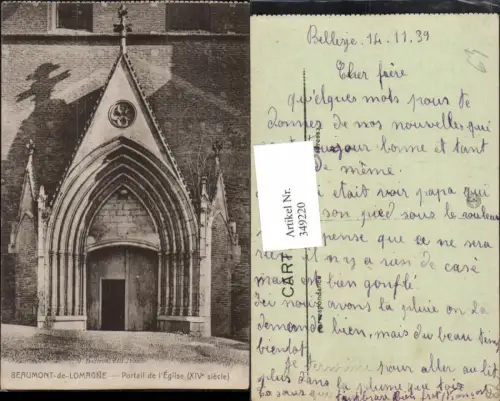 BEAUMONT-de-LOMAGNE — Portail de l'Église (XIVe siècle)
Bellerje 14.11.39
Cher frère
quelques mots pour te
donner de nos nouvelles qui
toujour bonne et tant
de même.
était voir papa qui
son pied sous le rouleau
pense que ce ne sera
rien il n'y a rien de casé
mais est bien gonflé
ici nous avons la pluie on la
demande bien, mais du beau temps
bientôt
Je termine pour aller au lit
plus dans la plume que toi
Artikel Nr.
349220
CART
Correspondance